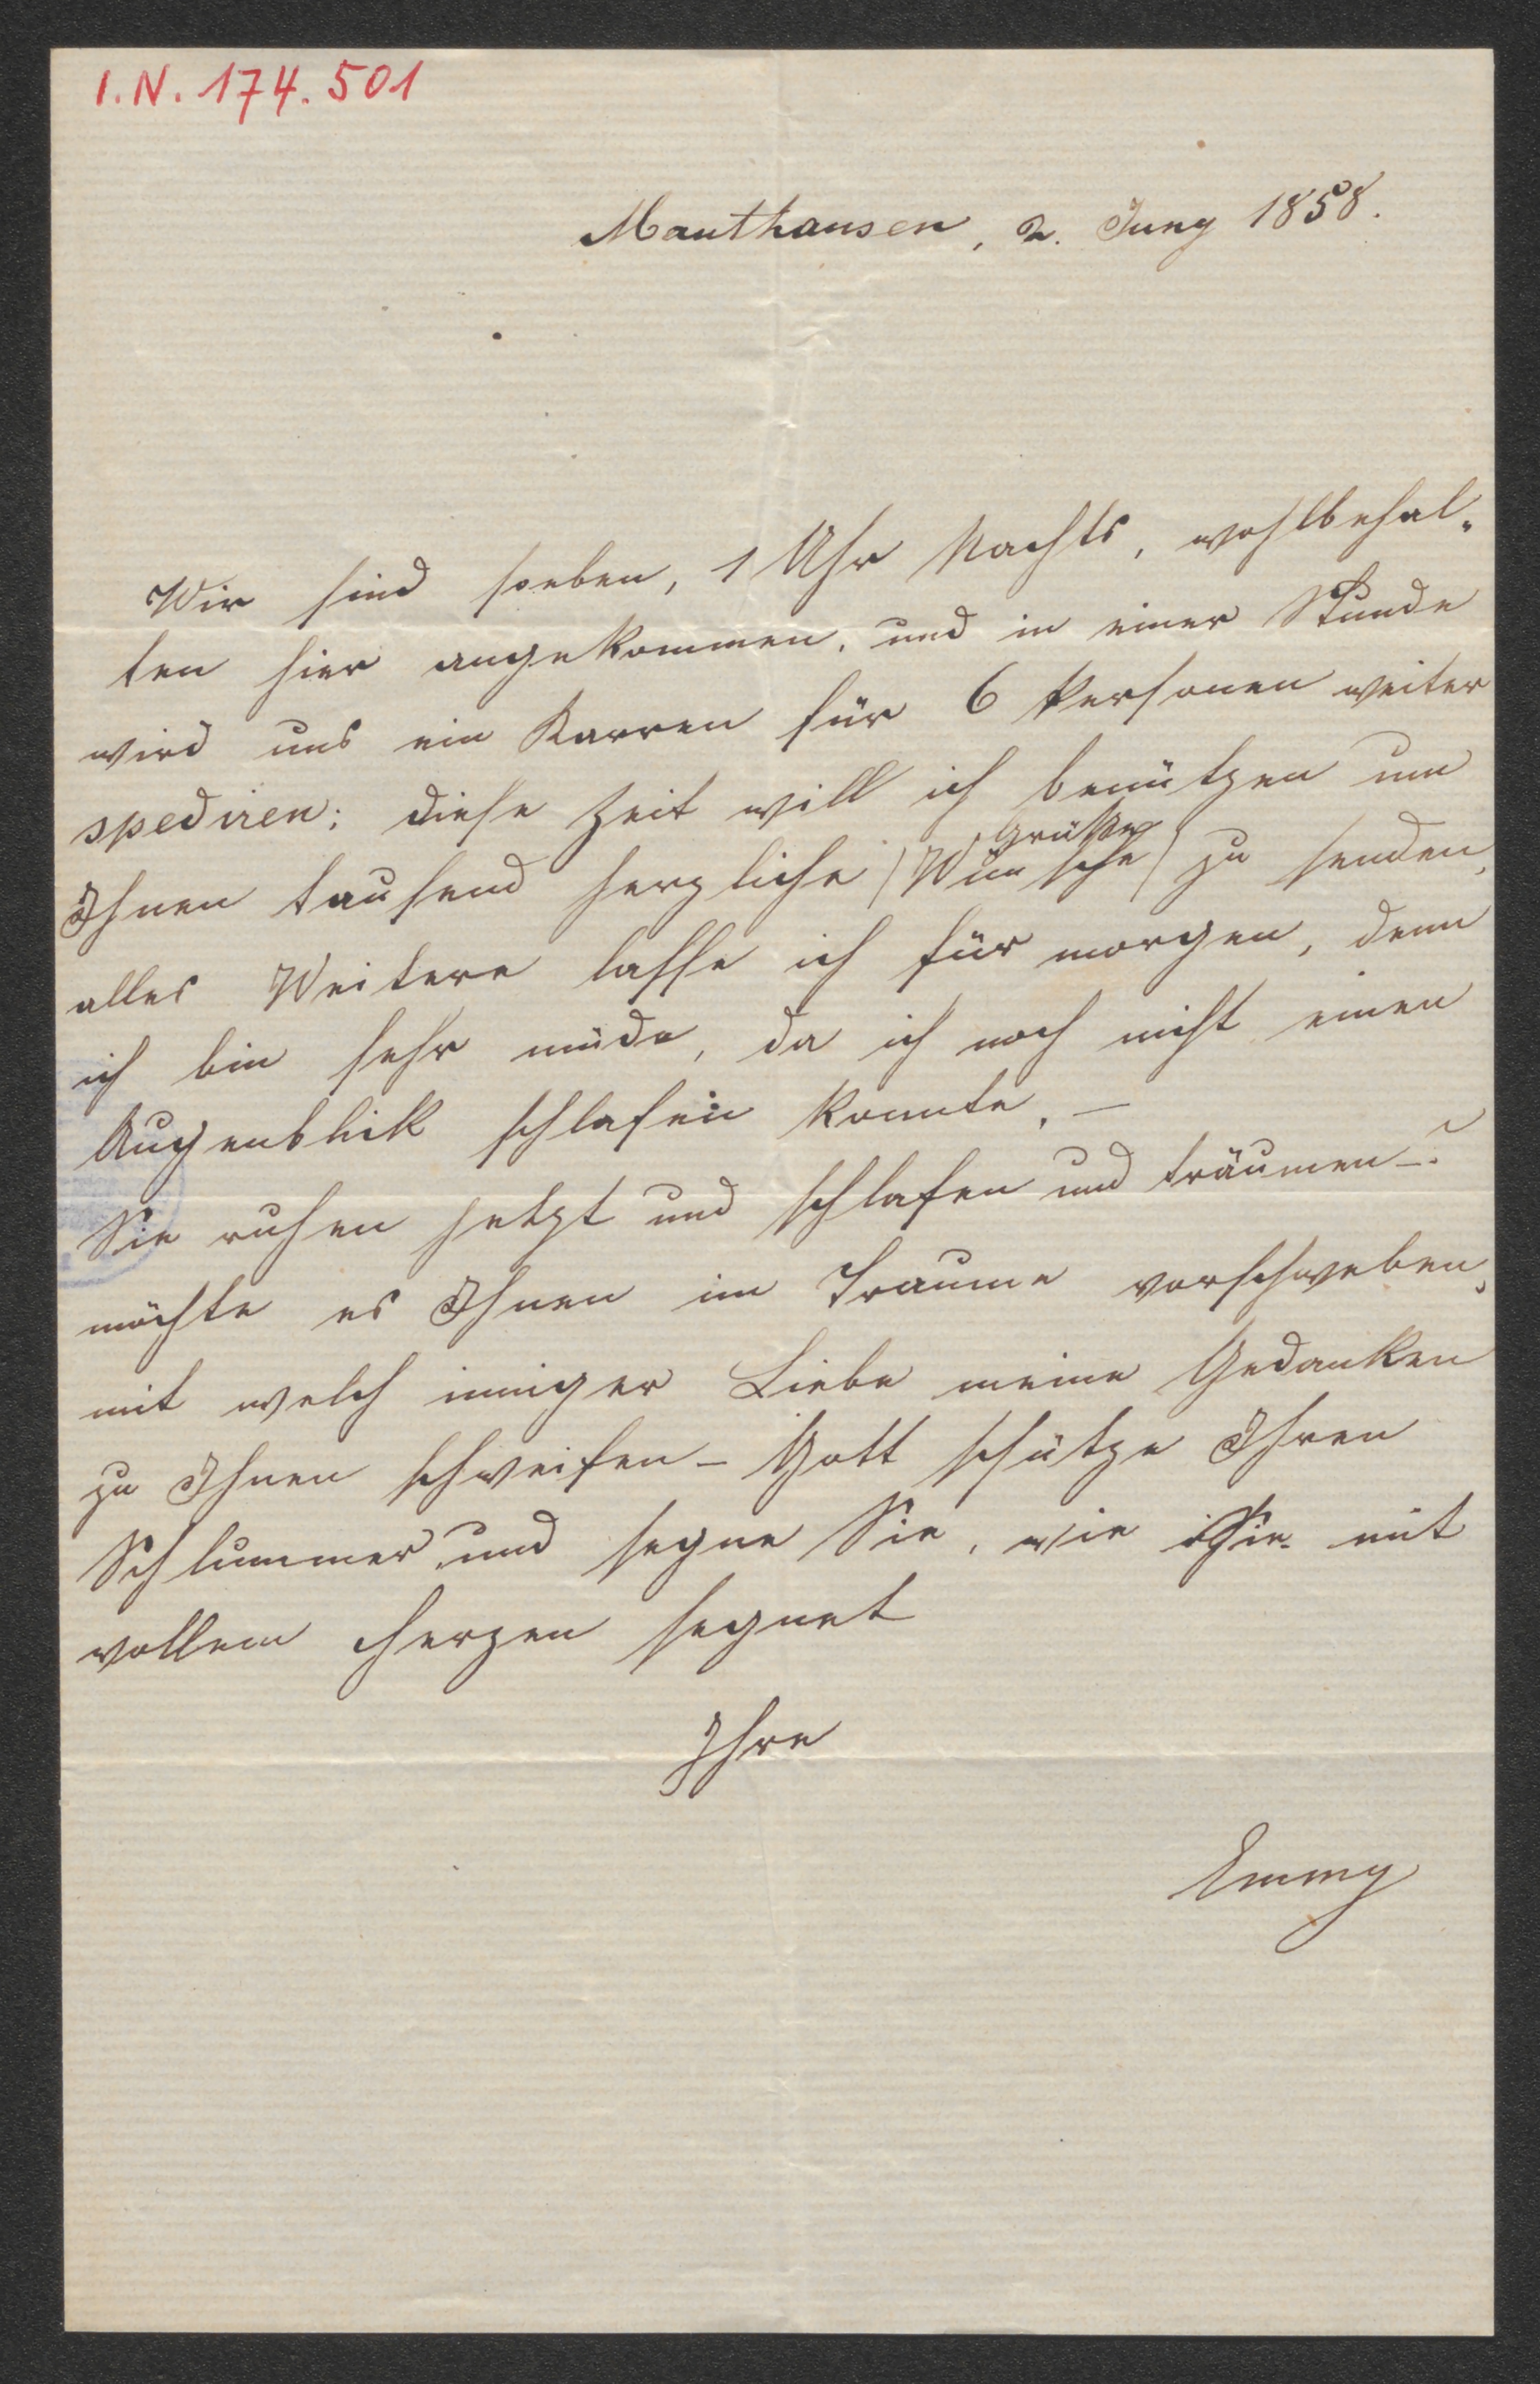 I.N. 174.501
Mauthausen, 2. Juny 1858.
Wir sind soeben, 1 Uhr Nachts, wohlbehal-
ten hier angekommen, und in einer Stunde
wird uns ein Karren für 6 Personen weiter
spediren; diese Zeit will ich benützen um
Grüße
Ihnen tausend herzliche (Wünsche) zu senden,
alles Weitere lasse ich für morgen, denn
ich bin sehr müde, da ich noch nicht einen
Augenblik schlafen konnte. —
Sie ruhen jetzt und schlafen und träumen —?
möchte es Ihnen im Traume vorschweben,
mit welch inniger Liebe meine Gedanken
zu Ihnen schweifen — Gott schütze Ihren
Schlummer und segne Sie, wie Sie mit
vollem Herzen segnet
Ihre
Emmy